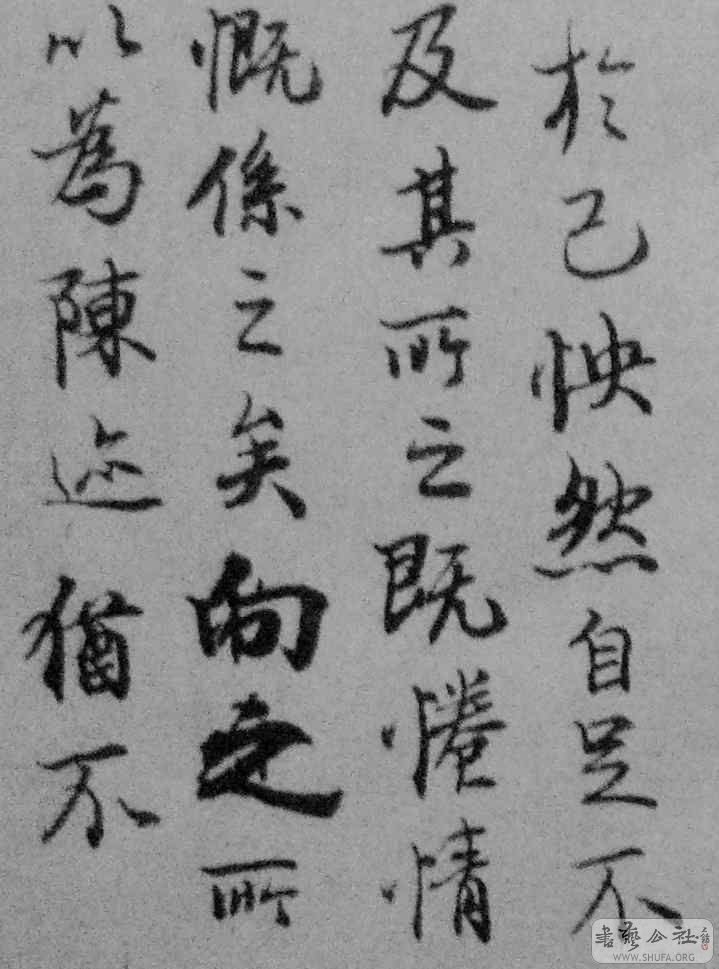 於己怏然自足不
及其所之既惓情
慨係之矣向之所
以為陳迹猶不
書藝公社
WWW.SHUFA.ORG